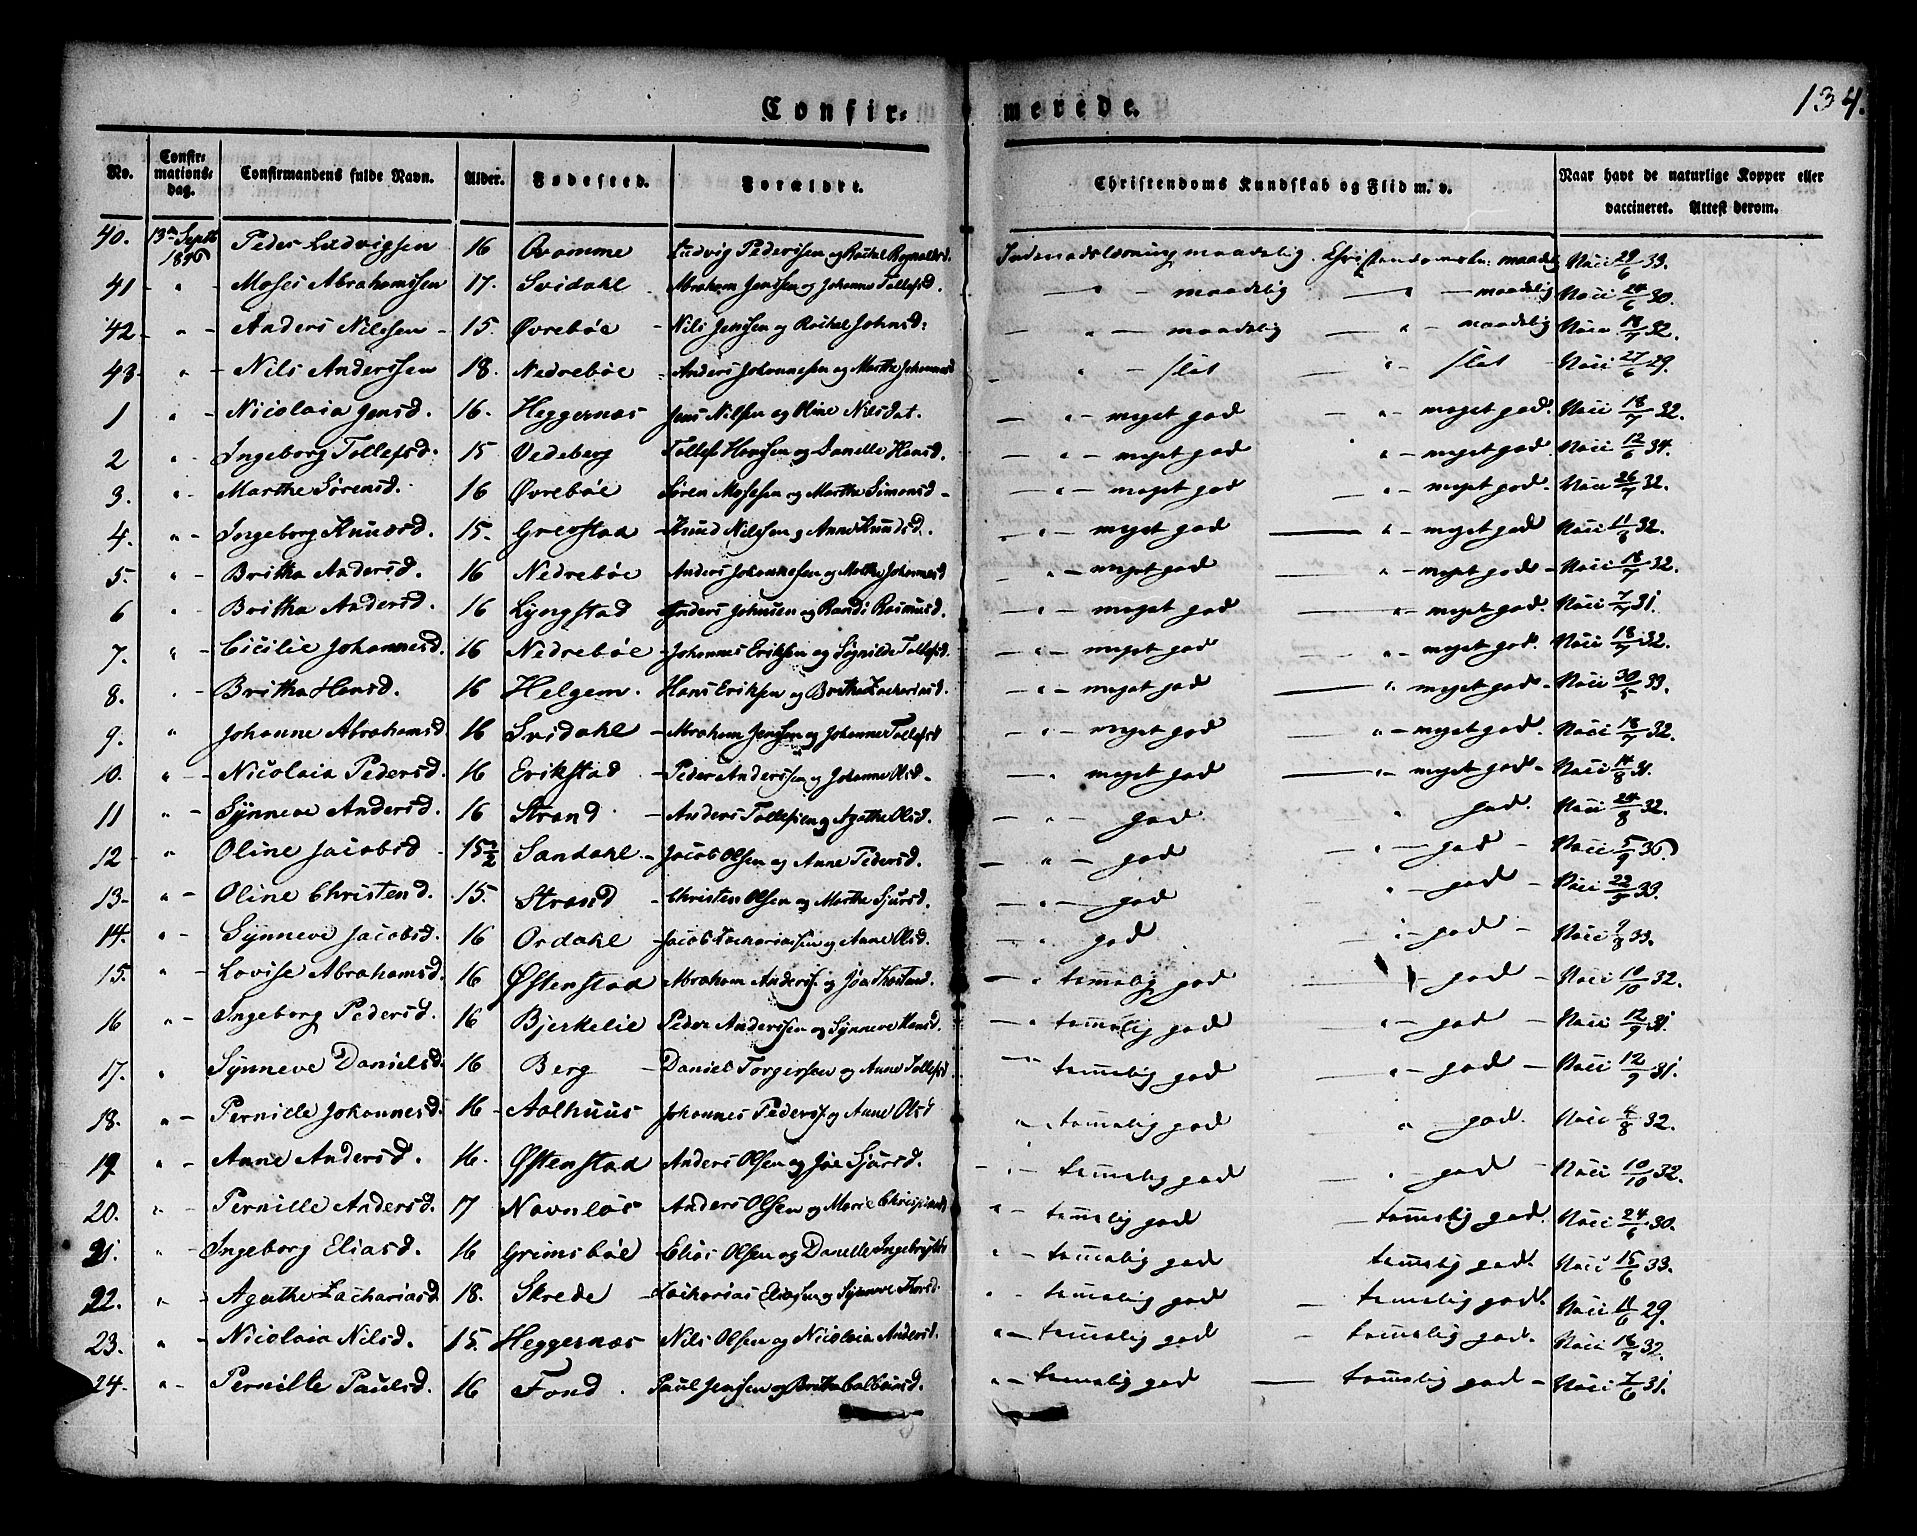 134.
Confir= merede.
No. Confir=mations=dag. Confirmandens fulde Navn. Alder. Fødested. Forældre. Christendoms Kundskab og Flid m. v. Naar havt de naturlige Kopper eller vaccineret. Attest derom.
40. 13de Septb 1846 Peder Ludvigsen 16 Ludvig Pederssen og Rachel maadelig. maadelig Vacc 29/6 33.
41 - " - Moses Abrahamssen 17. Svidahl - Abraham Jenssen og Johanne Tollefsd. — " — maadelig — " — maadelig Vacc 24/6 30.
42 - " - Anders Nilssen - 15. Øvrebøe - Nils Jenssen og Rachel Johnsd: — " — maadelig — " — maadelig Vacc 18/7 32.
43. " - Nils Anderssen 18. Nedrebøe - Anders Johannessen og Marthe Johannesd — " — slet " — slet - Vacc 27/6 29.
1 " - Nicolaia Jensd. 16. Heggernæs Jens Nilsen og Oline Nilsdat. — " — meget god — " — meget god. Vacc 18/7 32.
2 " - Ingeborg Tollefsd. 15 Vedeberg Tollef Hanssen og Danelle Hansd. — " — meget god " — meget god. Vacc 12/6 34.
3. " - Marthe Sørensd. 16 Øvrebøe Søren Mosesen og Marthe Simonsd - — " — meget god — " — meget god. Vacc 26/7 32.
4. " - Ingeborg Knudsd. 15. Grevstad - Knud Nilssen og Anne Knudsd. — " — meget god — " — meget god Vacc 11/6 32.
5. " - Britha Andersd. 16 Nedrebøe Anders Johannessen og Marthe Johannesd — " — meget god " — meget god - Vacc 18/7 32.
6 " - Britha Andersd. 16 Lyngstad Anders Johnsen og Randi Rasmusd. — " — meget god — " — meget god. Vacc 7/7 31.
7. " - Cicilie Johannesd. 16 Nedrebøe - Johannes Erikssen og Signilde Tollefsd. — " — meget god " — meget god. Vacc 18/7 32.
8. " - Britha Hansd. 16 Helgem. - Hans Eriksen og Britha Zachariasd. — " — meget god — " meget god - Vacc 30/5 33.
9. " Johanne Abrahamsd 16 Svidahl - Abraham Jenssen og Johanne Tollefsd — " — meget god " — meget god. Vacc 18/7 32.
10. " - Nicolaia Pedersd. 16 Erikstad - Peder Anderssen og Johanne Olsd - — " — meget god — " — meget god - Vacc 14/8 31.
11 " - Synneve Andersd. 16 Strand - Anders Tollefsen og Agathe Olsd. — " — god " god. Vacc 24/8 32.
12 - " Oline Jacobsd - 15 1/2 Sandahl - Jacob Olsen og Anne Pedersd. — " — god — " — god - Vacc 5/9 36.
13- " - Oline Christend. 15. Strand - Christen Olsen og Marthe Sjursd. — " — god " — god - Vacc 22/5 33.
14. " - Synneve Jacobsd. 16 Ordahl - Jacob Zachariassen og Anne Olsd. — " god — " — god - Vacc 9/8 33.
15. " - Lovise Abrahamsd. 16 Østenstad Abraham Anderss. og — " temelig god — god - Vacc 10/10 32.
16 " - Ingeborg Pedersd. 16 Bjerkelie Peder Anderssen og Synneve Hansd. — " temelig god " — god - Vacc 12/9 31.
17. " Synneve Danielsd. 16 Berg - Daniel Torgersen og Anne Tollefsd. " temelig god — " — god - Vacc 12/9 31.
18. " - Pernille Johannesd. 16 - Aalhuus Johannes Pederss. og Anne Olsd " temelig god — " — god. Vacc 4/8 32.
19 " - Anne Andersd. 16. Østenstad Anders Olsen og Joe Sjursd. - " — temelig god " — god - Vacc 10/10 32.
20. " - Pernille Andersd. 17 Navnløs Anders Olsen og Marie " — temelig god — temelig god. Vacc 24/6 30.
21. " Ingeborg Eliasd. 16 Grimsbøe Elias Olsen og Danelle " — temelig god temelig god. Vacc 15/6 33.
22. " - Agathe Zachariasd 18. Skrede - Zacharias Eliassen og Synneve Thorsd. " - temelig god — temelig god. Vacc 11/6 29.
23. " - Nicolaia Nilsd. 15. Heggernæs Nils Olsen og Nicolaia Andersd. " — temelig god — temelig god. Vacc 18/7 32.
24. " - Pernille Paulsd. 16 Fond. Paul Jenssen og Britha " — temelig god — temelig god - Vacc 7/6 31.